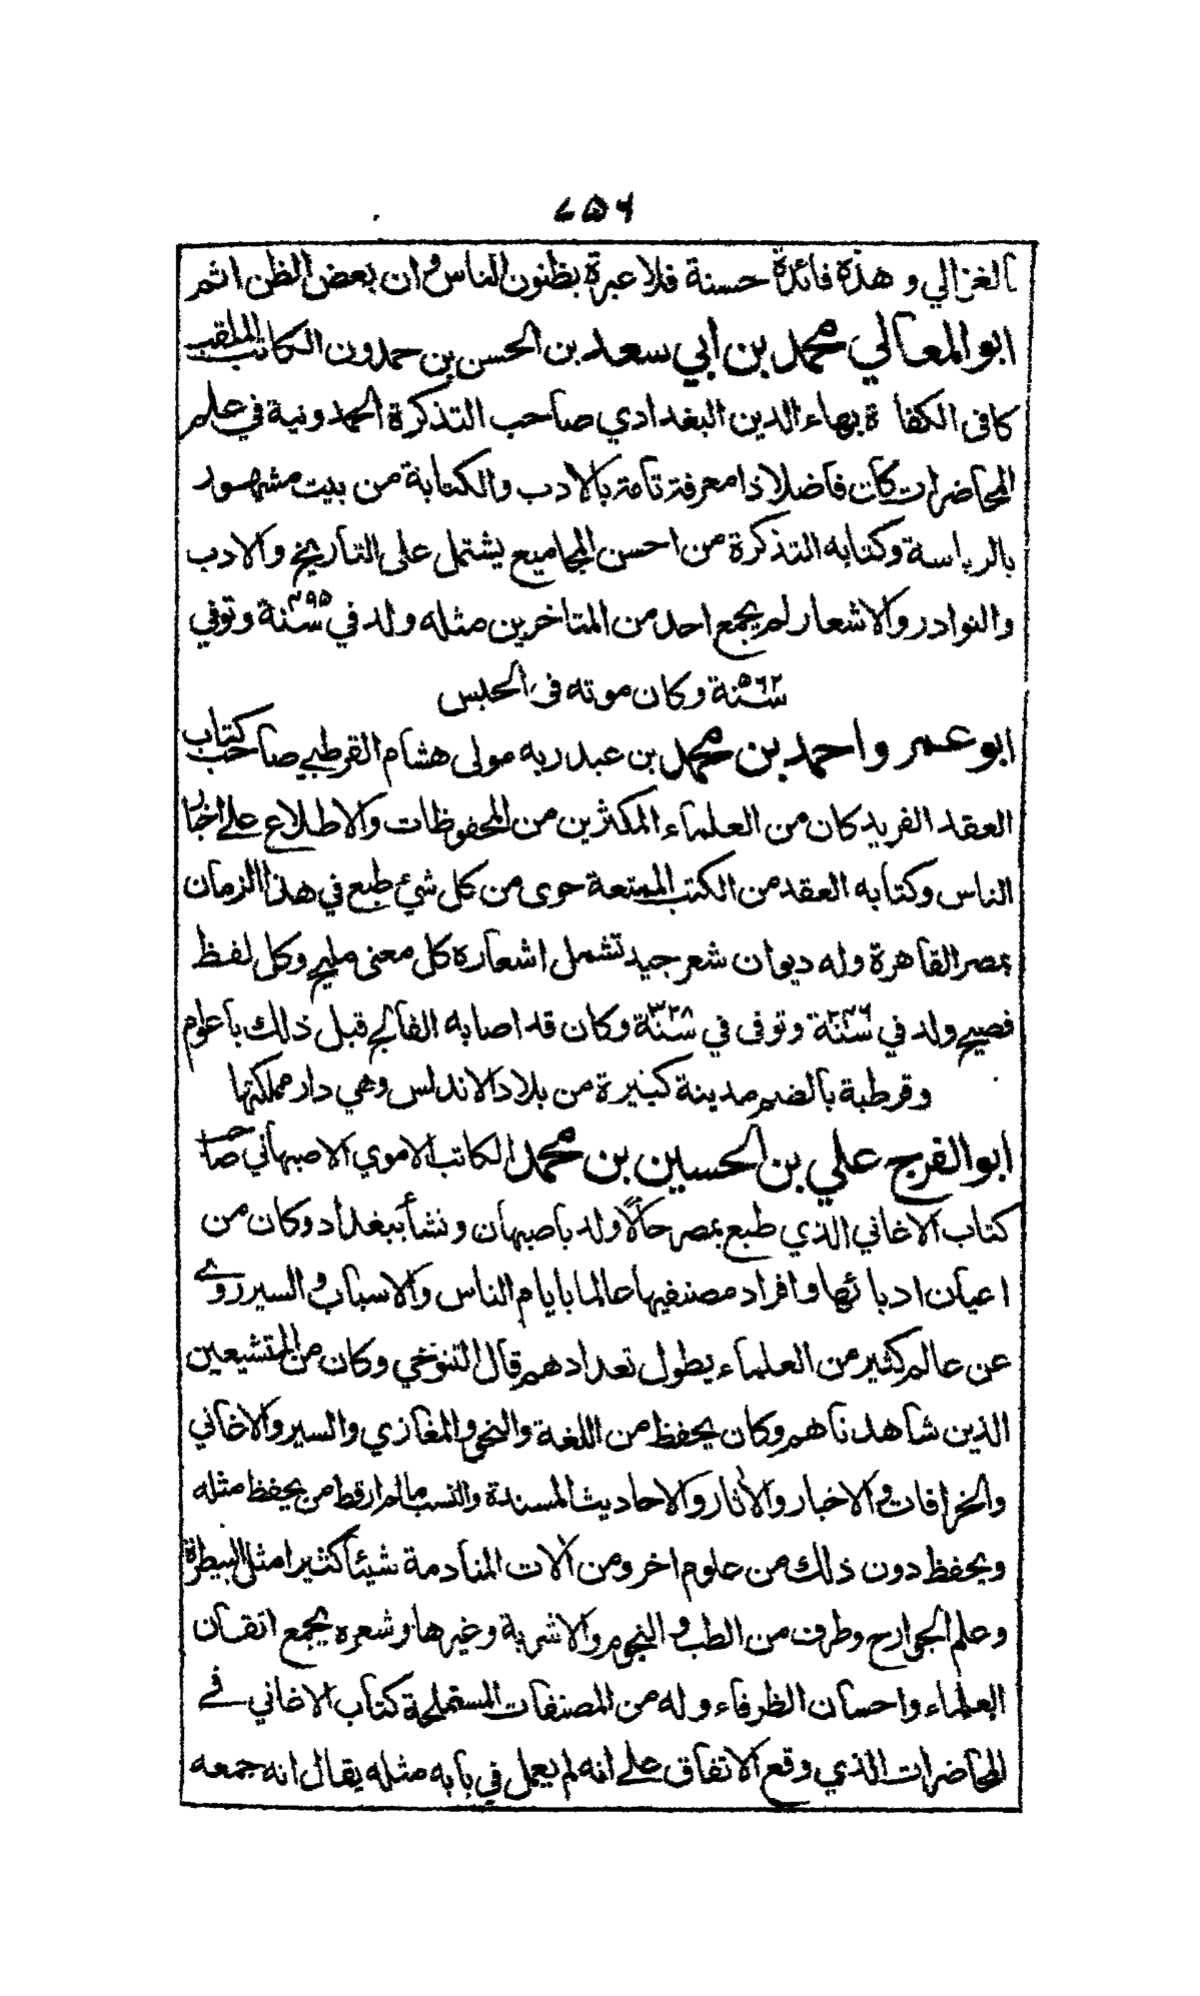 ٧٥٦
الغزالي وهذه فائدة حسنة فلا عبرة بظنون الناس وان بعض الظن اثم
ابو المعالي محمد بن أبي سعد بن الحسن بن حمدون الكاتب الملقب
كافى الكفاة بهاء الدين البغدادي صاحب التذكرة الحمدونية في علم
المحاضرات كان فاضلا ذا معرفة تامة بالادب والكتابة من بيت مشهور
بالرياسة وكتابه التذكرة من احسن المجاميع يشتمل على التاريخ والادب
والنوادر والاشعار لم يجمع احد من المتاخرين مثله ولد في سنة ٤٩٥ وتوفي
سنة ٥٦٢ وكان موته فى الحبس
ابو عمر واحمد بن محمد بن عبد ربه مولى هشام القرطبي صاحب كتاب
العقد الفريد كان من العلماء المكثرين من المحفوظات والاطلاع على اخبار
الناس وكتابه العقد من الكتب الممتعة حوى من كل شيء طبع في هذا الزمان
بمصر القاهرة وله ديوان شعر جيد تشمل اشعاره كل معنى مليح وكل لفظ
فصيح ولد في سنة ٢٤٦ وتوفى في سنة ٣٢٨ وكان قد اصابه الفالج قبل ذلك باعوام
وقرطبة بالضم مدينة كبيرة من بلاد الاندلس وهي دار مملكتها
ابو الفرج علي بن الحسين بن محمد الكاتب الاموي الاصبهاني صاحب
كتاب الاغاني الذي طبع بمصر حالًا ولد باصبهان ونشأ ببغداد وكان من
اعيان ادبائها وافراد مصنفيها عالما بايام الناس والانساب والسير روى
عن عالم كثير من العلماء يطول تعدادهم قال التنوخي وكان من المتشيعين
الذين شاهدناهم وكان يحفظ من اللغة والنحو والمغازي والسير والاغاني
والخرافات والاخبار والأثار والاحاديث المسندة والنسب مالم ار قط من يحفظ مثله
ويحفظ دون ذلك من علوم اخر ومن آلات المنادمة شيئًا كثيرا مثل البيطرة
وعلم الجوارح وطرف من الطب والنجوم والاشربة وغيرها وشعره يجمع اتقان
العلماء واحسان الظرفاء وله من المصنفات المستملحة كتاب الاغاني في
المحاضرات الذي وقع الاتفاق على انه لم يعمل في بابه مثله يقال انه جمعه